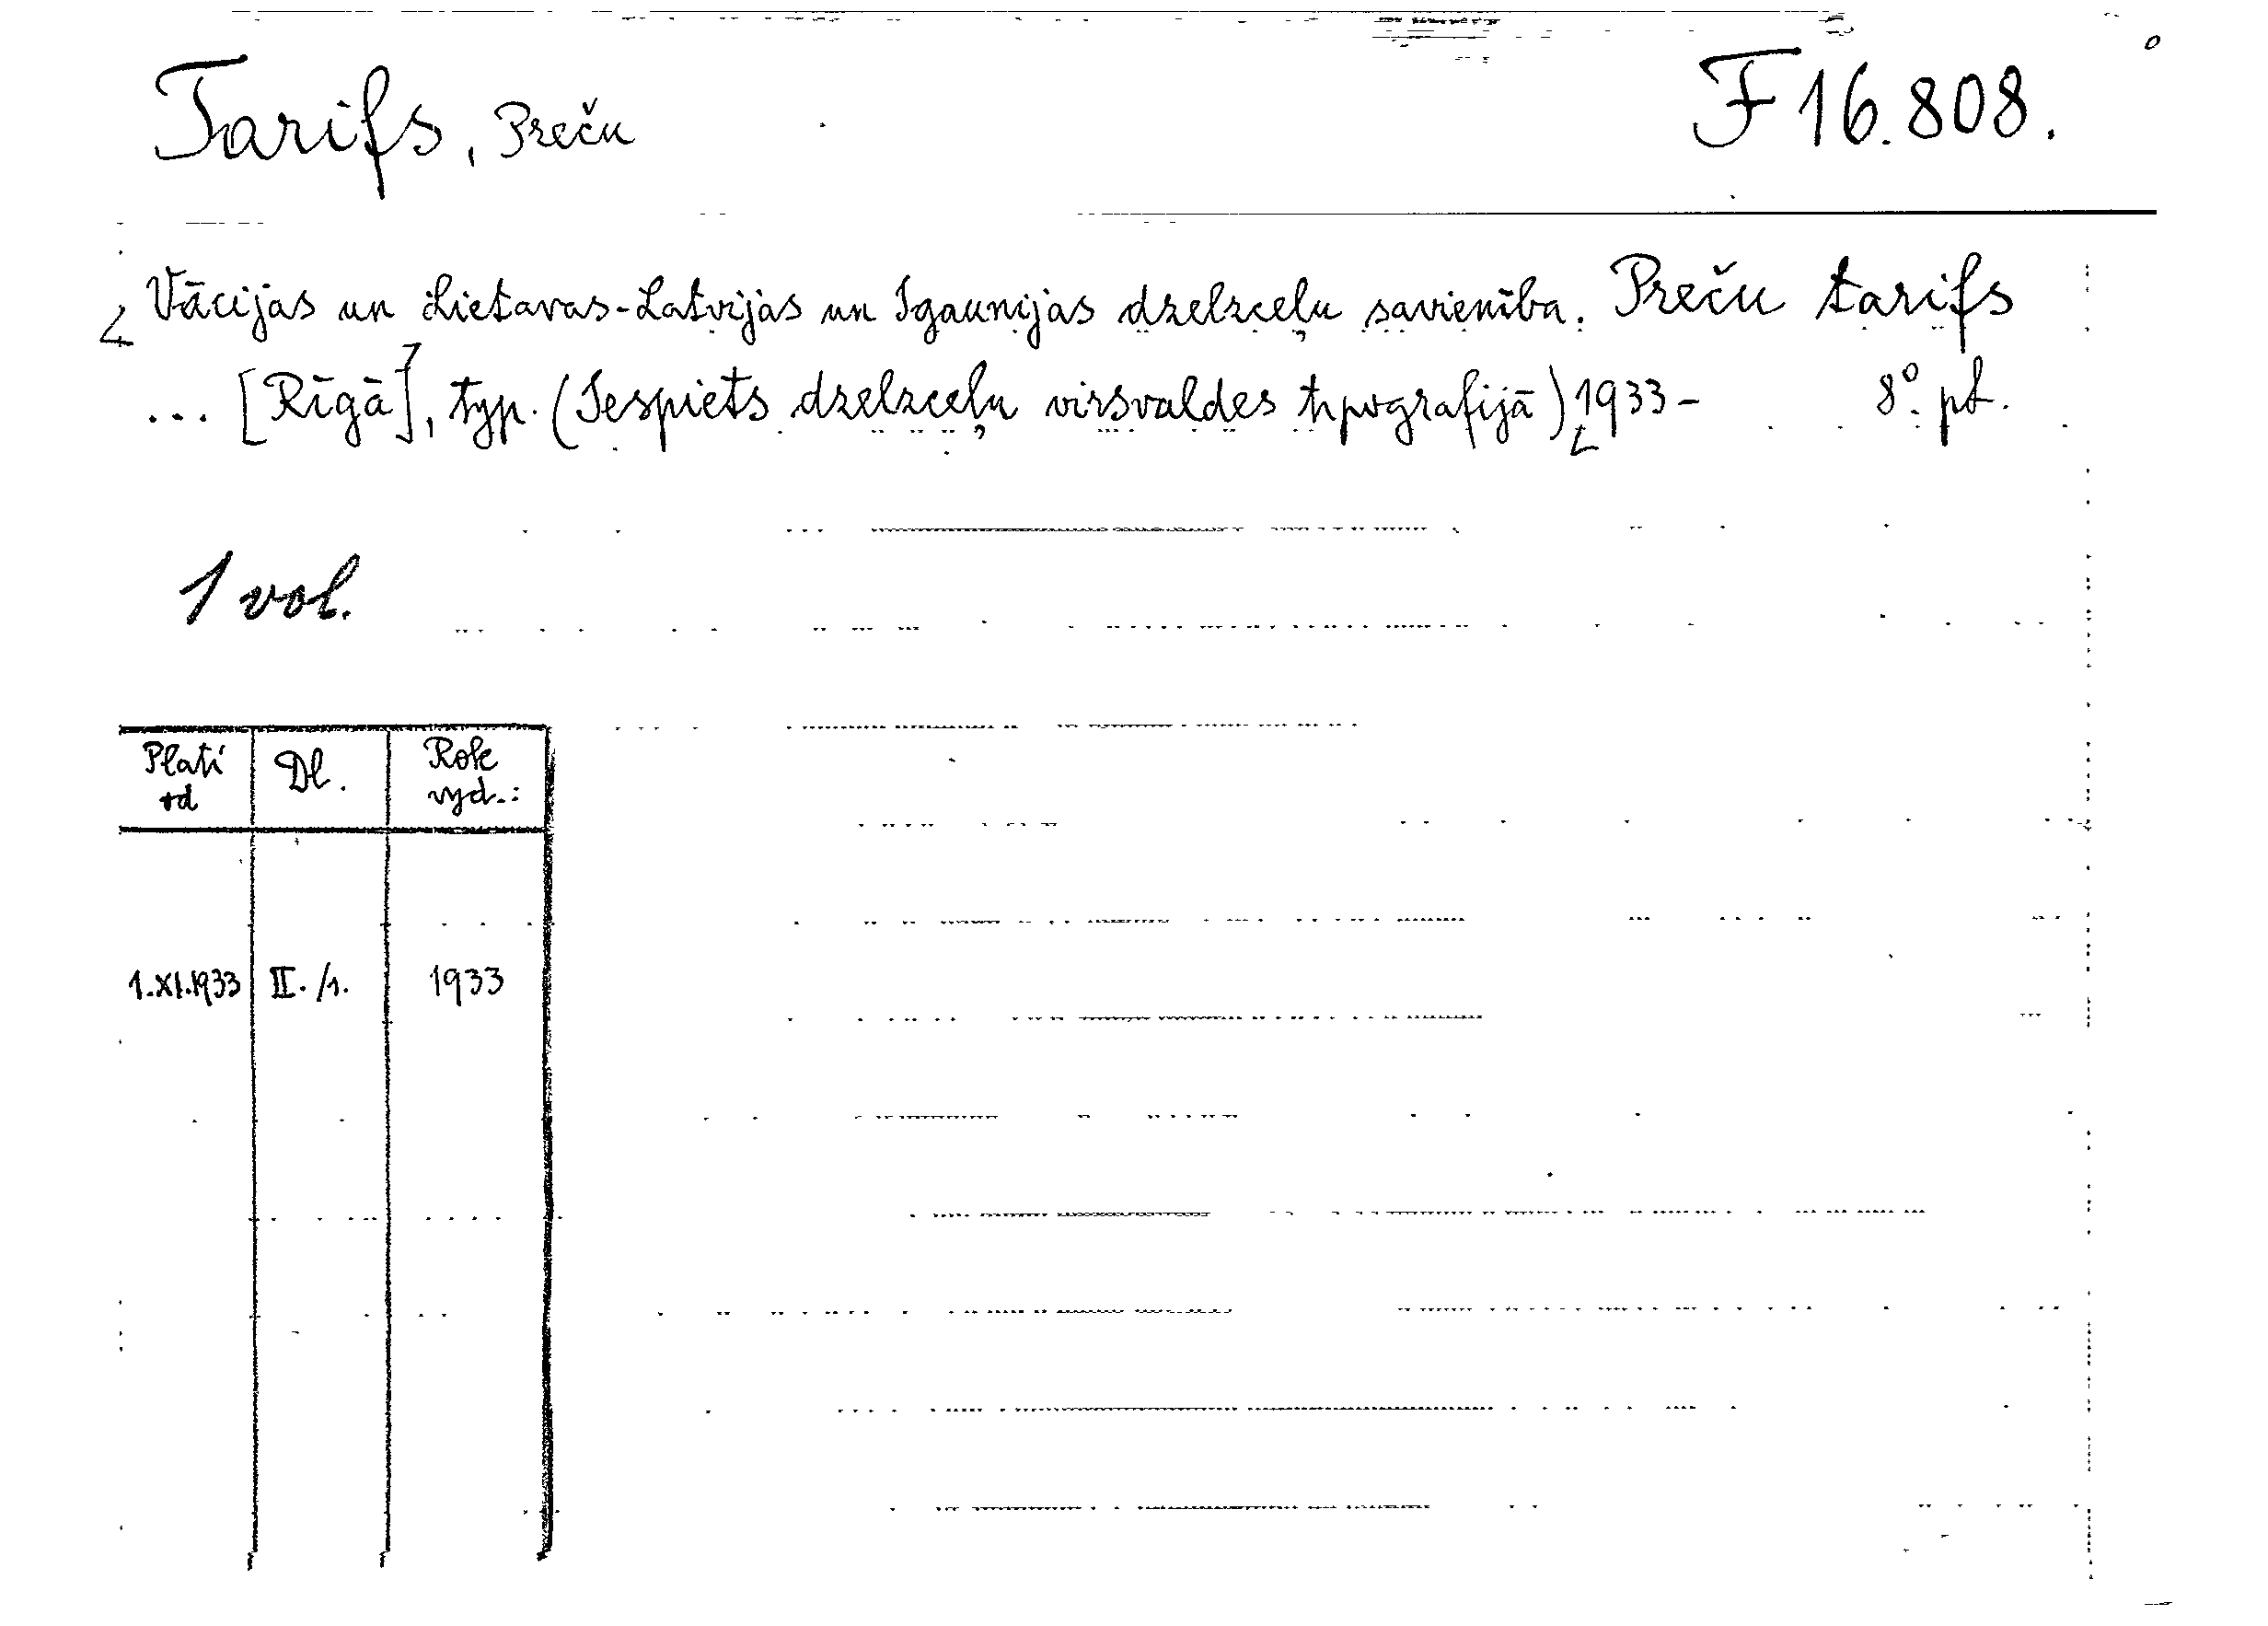 Tarifs, Preču F 16.808.
Vācijas un Lietavas-Latvijas un Igaunijas dzelzceļu savienība. Preču tarifs
... [Rīgā], typ. (Iespiets dzelzceļu virsvaldes tipografijā) 1933- 8°. pt.
1 vol.
Platí od Dl. Rok vyd.:
1.XI.1933 II./1. 1933